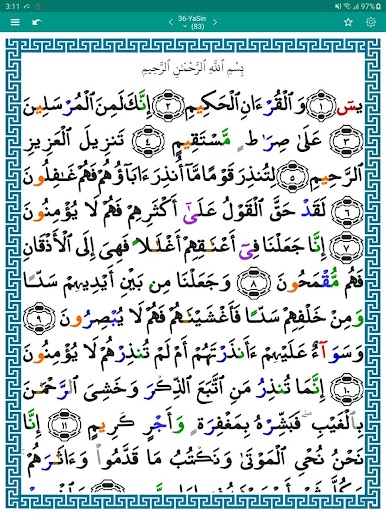 3:11 97%
36-YaSin
(83)
بِسْمِ اللَّهِ الرَّحْمَٰنِ الرَّحِيمِ
يسٓ ١ وَالْقُرْءَانِ الْحَكِيمِ ٢ إِنَّكَ لَمِنَ الْمُرْسَلِينَ
٣ عَلَىٰ صِرَٰطٍ مُّسْتَقِيمٍ ٤ تَنزِيلَ الْعَزِيزِ
الرَّحِيمِ ٥ لِتُنذِرَ قَوْمًا مَّآ أُنذِرَ ءَابَآؤُهُمْ فَهُمْ غَٰفِلُونَ
٦ لَقَدْ حَقَّ الْقَوْلُ عَلَىٰٓ أَكْثَرِهِمْ فَهُمْ لَا يُؤْمِنُونَ
٧ إِنَّا جَعَلْنَا فِىٓ أَعْنَٰقِهِمْ أَغْلَٰلًا فَهِىَ إِلَى الْأَذْقَانِ
فَهُم مُّقْمَحُونَ ٨ وَجَعَلْنَا مِن بَيْنِ أَيْدِيهِمْ سَدًّا
وَمِنْ خَلْفِهِمْ سَدًّا فَأَغْشَيْنَٰهُمْ فَهُمْ لَا يُبْصِرُونَ ٩
وَسَوَآءٌ عَلَيْهِمْ ءَأَنذَرْتَهُمْ أَمْ لَمْ تُنذِرْهُمْ لَا يُؤْمِنُونَ
١٠ إِنَّمَا تُنذِرُ مَنِ اتَّبَعَ الذِّكْرَ وَخَشِىَ الرَّحْمَٰنَ
بِالْغَيْبِ ۖ فَبَشِّرْهُ بِمَغْفِرَةٍ وَأَجْرٍ كَرِيمٍ ١١ إِنَّا
نَحْنُ نُحْىِ الْمَوْتَىٰ وَنَكْتُبُ مَا قَدَّمُوا۟ وَءَاثَٰرَهُمْ
وَكُلَّ شَىْءٍ أَحْصَيْنَٰهُ فِىٓ